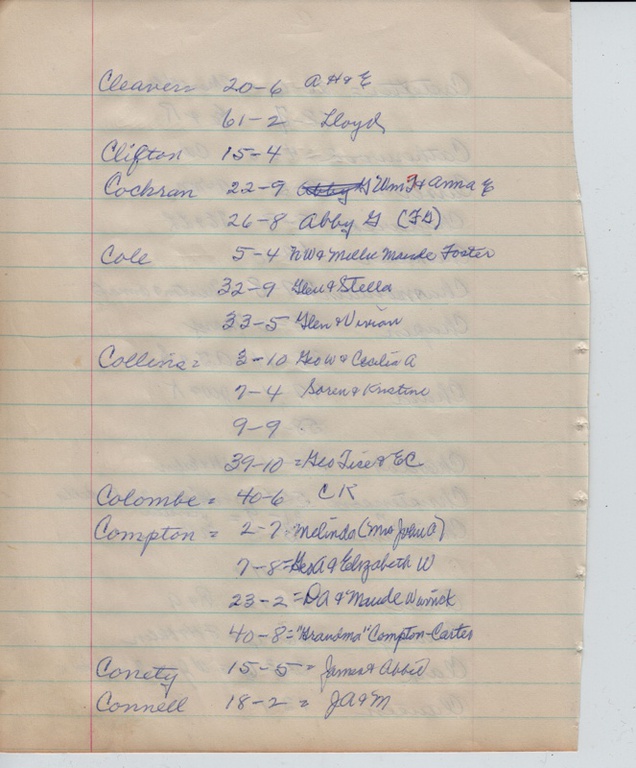 Cleaver 20-6 A H & E
61-2 Lloyd
Clifton 15-4
Cochran 22-9 Abby G Wm T & Anna E
26-8 Abby G (FG)
Cole 5-4 NW & Millie Maude Foster
32-9 Glen & Stella
33-5 Glen & Vivian
Collins = 3-10 Geo W & Cecilia A
7-4 Soren & Kristine
9-9
39-10 = Geo Tise & EC
Colombe = 40-6 C K
Compton = 2-7 = Melinda (Mrs John A)
7-8 = Geo A & Elizabeth W
23-2 = D A & Maude Warrick
40-8 = "Grandma" Compton-Carter
Conety 15-5 = James &
Connell 18-2 = J A & M